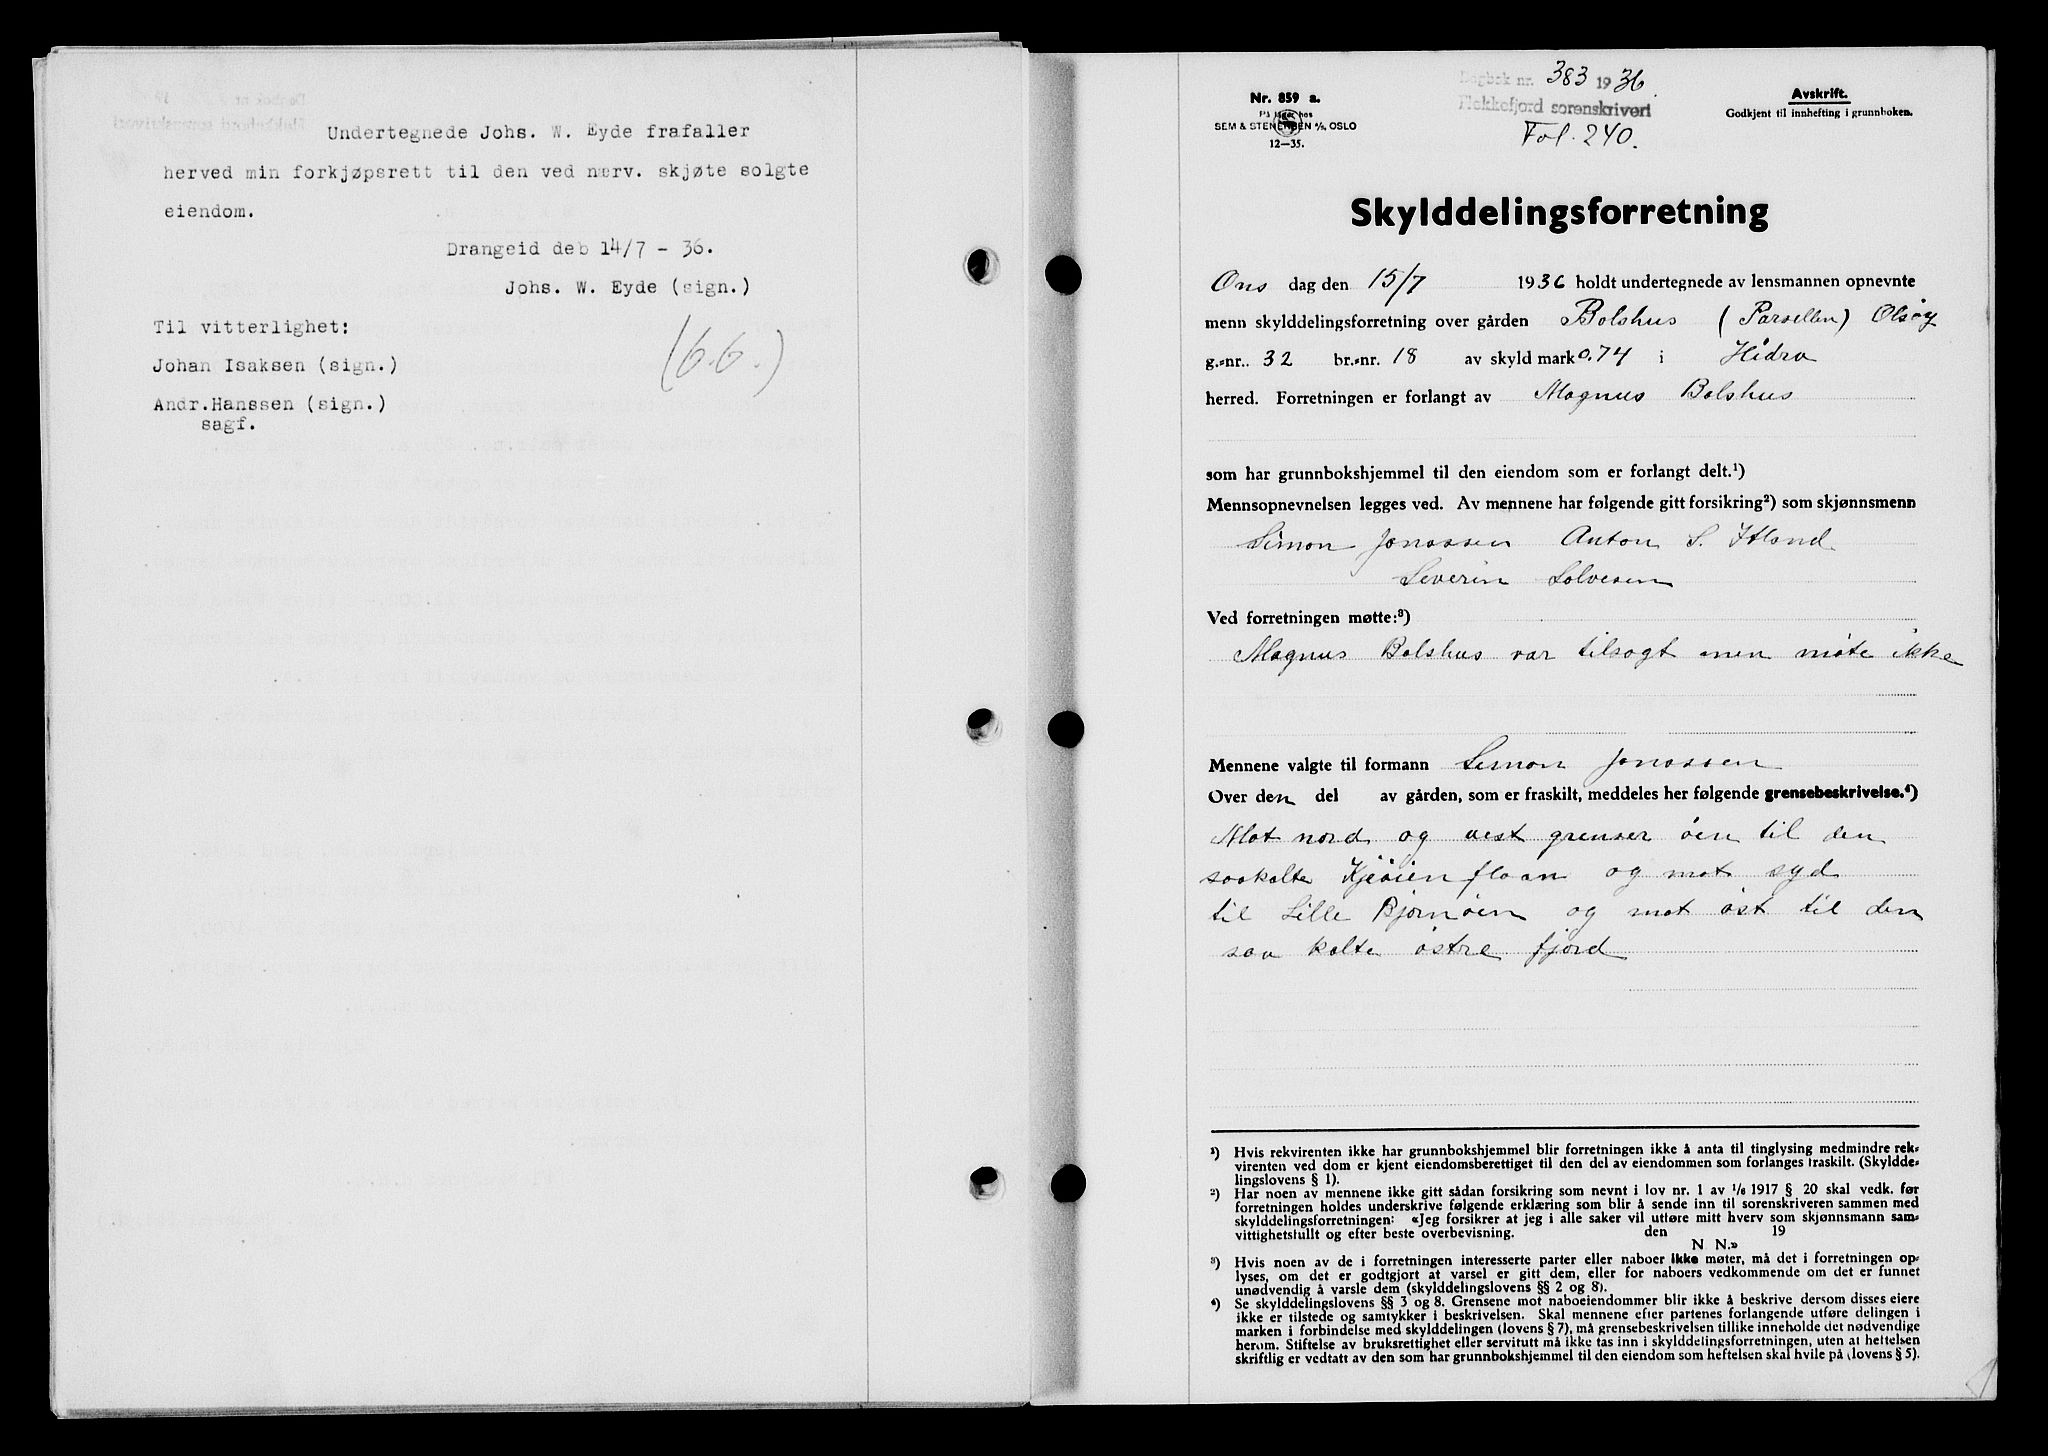 Undertegnede Johs. W. Eyde frafaller
herved min forkjøpsrett til den ved nærv. skjøte solgte
eiendom.
Drangeid deb 14/7 - 36.
Johs. W. Eyde (sign.)
Til vitterlighet:
Johan Isaksen (sign.)
Andr.Hanssen (sign.)
sagf.
(6.6.)
Nr. 859 a.
På lager hos
SEM & STENERSEN A/S, OSLO
12—35.
Dagbok nr. 383 1936.
Flekkefjord sorenskriveri
Fol. 240.
Avskrift.
Godkjent til innhefting i grunnboken.
Skylddelingsforretning
Ons dag den 15/7 1936 holdt undertegnede av lensmannen opnevnte
menn skylddelingsforretning over gården Bolshus (Parsellen) Olsøy
g.-nr. 32 br.-nr. 18 av skyld mark 0.74 i Hidra
herred. Forretningen er forlangt av Magnus Bolshus
som har grunnbokshjemmel til den eiendom som er forlangt delt.¹)
Mennsopnevnelsen legges ved. Av mennene har følgende gitt forsikring²) som skjønnsmenn
Simon Jonassen Anton S. Itland
Severin Solvesen
Ved forretningen møtte:³)
Magnus Bolshus var tilsagt men møte ikke
Mennene valgte til formann Simon Jonassen
Over den del av gården, som er fraskilt, meddeles her følgende grensebeskrivelse.⁴)
Mot nord og vest grenser öen til den
saakalte Kjeöienflaan og mot syd
til Lille Bjørnöen og mot öst til den
saa kalte östre fjord
¹) Hvis rekvirenten ikke har grunnbokshjemmel blir forretningen ikke å anta til tinglysing medmindre rek-
virenten ved dom er kjent eiendomsberettiget til den del av eiendommen som forlanges fraskilt. (Skyldde-
lingslovens § 1).
²) Har noen av mennene ikke gitt sådan forsikring som nevnt i lov nr. 1 av 1/6 1917 § 20 skal vedk. før
forretningen holdes underskrive følgende erklæring som blir å sende inn til sorenskriveren sammen med
skylddelingsforretningen: «Jeg forsikrer at jeg i alle saker vil utføre mitt hverv som skjønnsmann sam-
vittighetsfullt og efter beste overbevisning. den 19
N N.»
³) Hvis noen av de i forretningen interesserte parter eller naboer ikke møter, må det i forretningen op-
lyses, om det er godtgjort at varsel er gitt dem, eller for naboers vedkommende om det er funnet
unødvendig å varsle dem (skylddelingslovens §§ 2 og 8).
⁴) Se skylddelingslovens §§ 3 og 8. Grensene mot naboeiendommer blir ikke å beskrive dersom disses eiere
ikke er tilstede og samtykker i beskrivelsen. Skal mennene efter partenes forlangende utføre delingen i
marken i forbindelse med skylddelingen (lovens § 7), må grensebeskrivelsen tillike inneholde det nødvendige
herom. Stiftelse av bruksrettighet eller servitutt må ikke tas inn i skylddelingsforretningen, uten at heftelsen
skriftlig er vedtatt av den som har grunnbokshjemmel til den eiendom som heftelsen skal hvile på (lovens § 5).